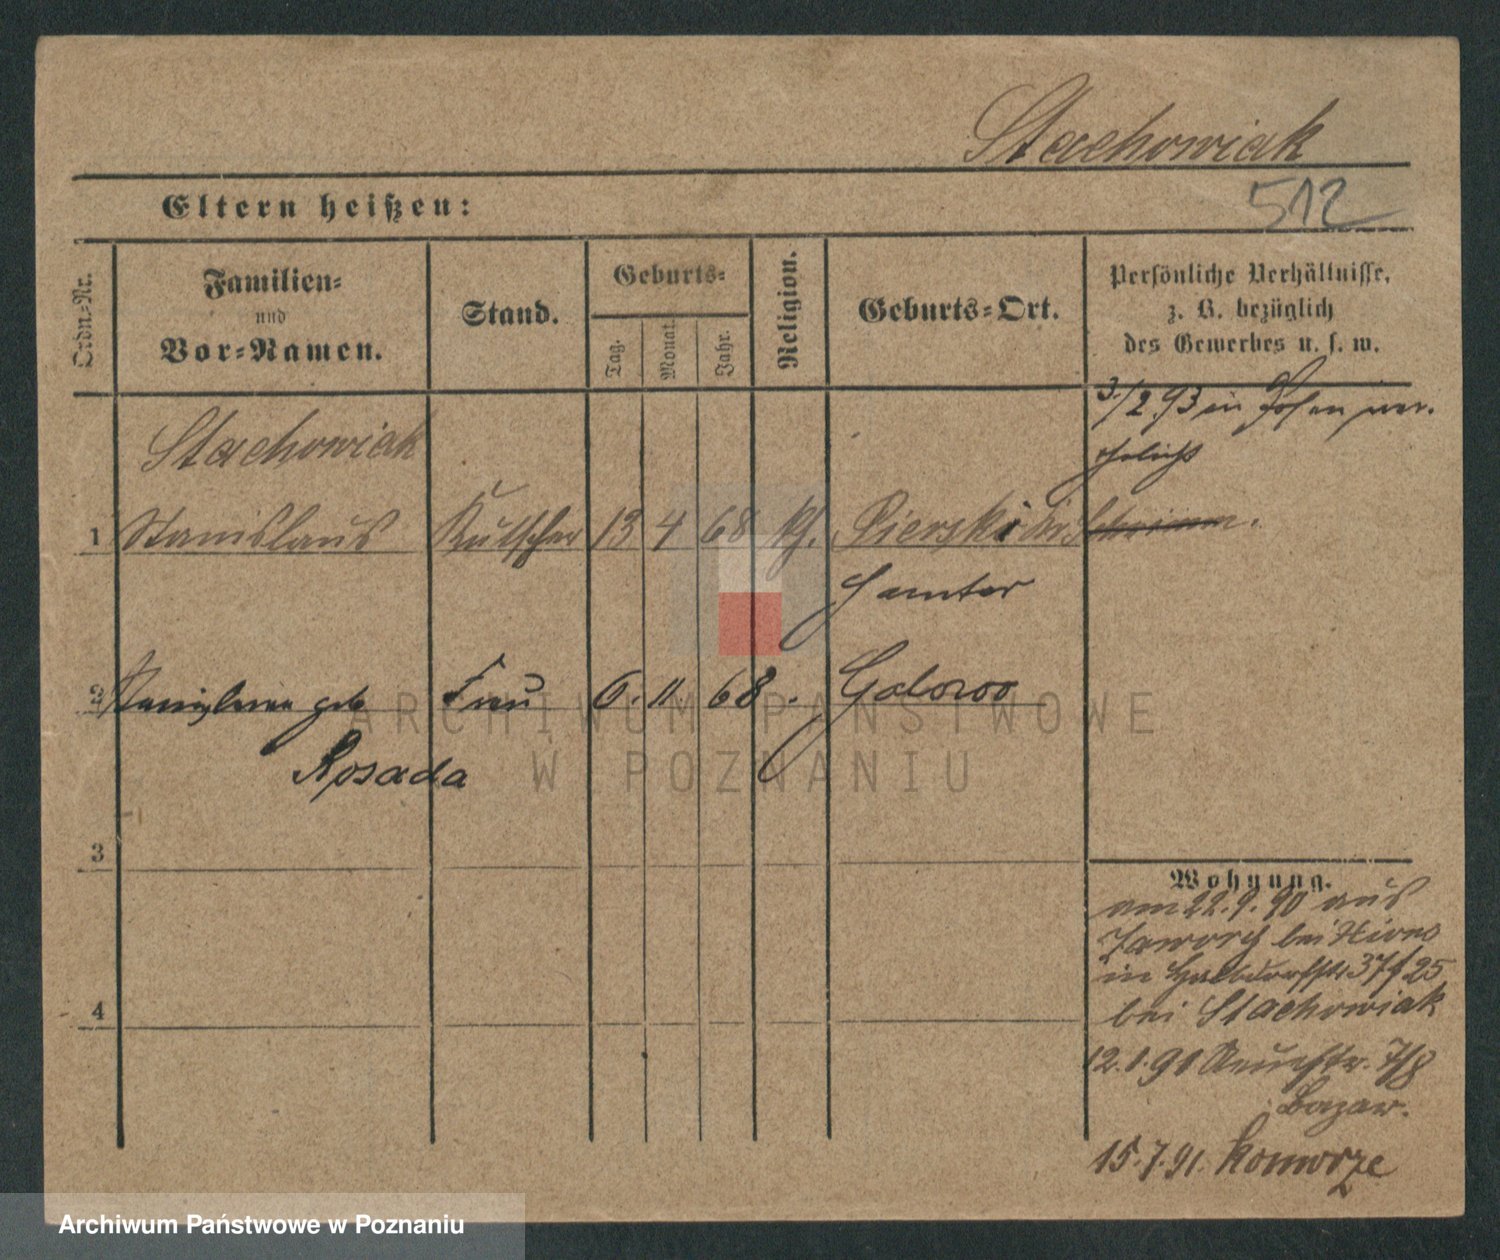 Stachowiak
512
Eltern heißen:
Ordn-Nr.
Familien-
und
Vor-Namen.
Stand.
Geburts-
Tag.
Monat.
Jahr.
Religion.
Geburts-Ort.
Persönliche Verhältnisse,
z. B. bezüglich
des Gewerbes u. s. w.
3./2 93 in Posen ver.
ehelicht
Stachowiak
1 Stanislaus Kutscher 13 4 68 kh. Pierski
Samter
2 geb Frau 6. 11. 68.
Rosada
3
4
Wohnung.
am 22.9.90 aus
bei
in Halbdorfstr 37 25
bei Stachowiak
12.1.91 Neuestr. 7/8
Bazar.
15.7.91. Komorze
ARCHIWUM PAŃSTWOWE
W POZNANIU
Archiwum Państwowe w Poznaniu